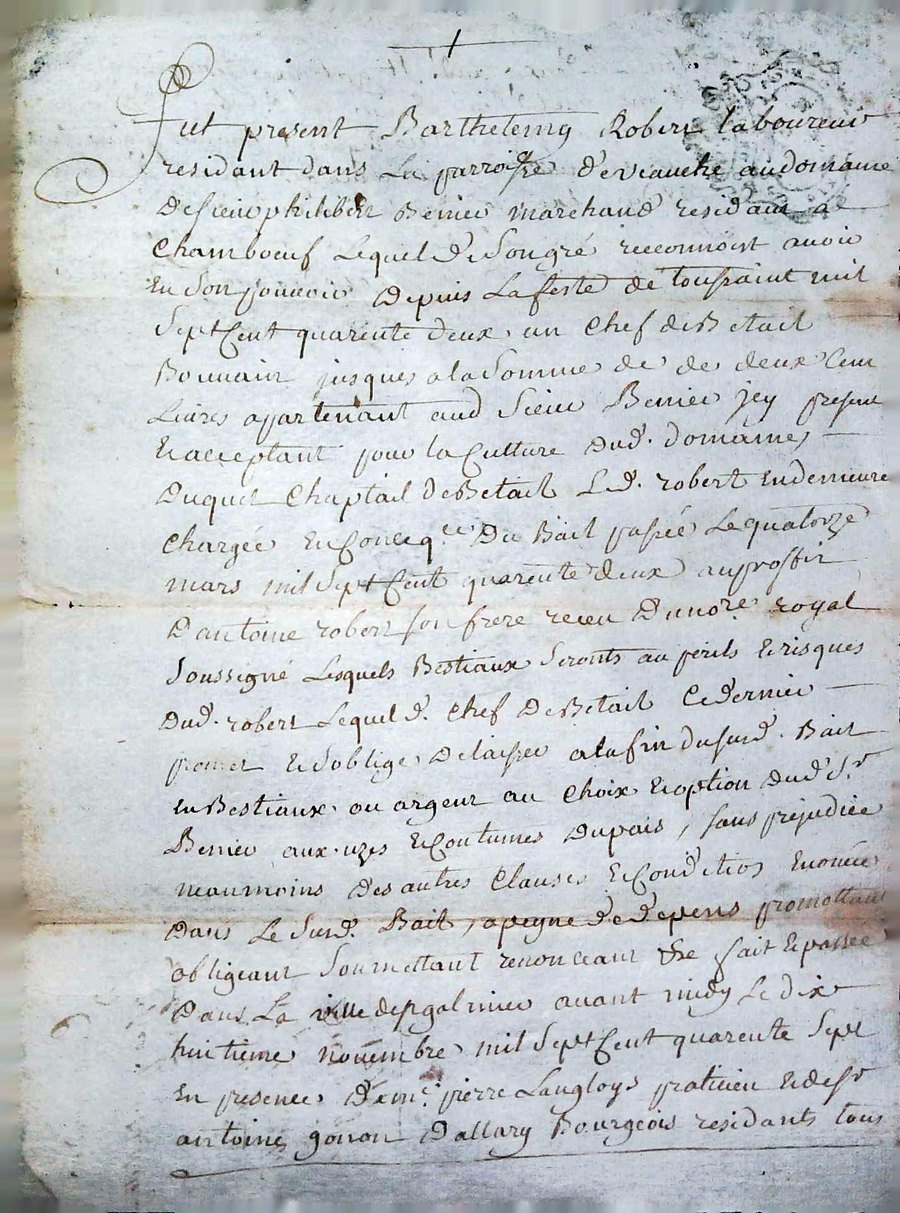 Fut present Barthelemy Robert laboureur
residant dans La parroisse de veauche au domaine
De sieur philibert Benier marchand residant a
Chambœuf Lequel de son gré reconnoist avoir
En son pouvoir Depuis La feste de toussaint mil
Sept Cent quarente deux un Chef de Betail
Bouvain jusques a la somme de de deux Cent
Livres appartenant aud Sieur Benier icy present
Et acceptant pour la Culture Dud. domaine
Duquel Chaptail de Betail Led. robert En demeure
Chargée En Conceq.ce Du Bail passée Le quatorze
mars mil sept Cent quarente deux au proffit
D antoine robert son frere receu Du no.re royal
Soussigné Lesquels Bestiaux Seronts au perils Et risques
Dud. robert Lequel d. Chef De Betail Ce dernier
promet Et s'oblige De laisser a la fin du sud. Bail
En Bestiaux ou argent au Choix Et option Dud. S.r
Benier aux uzes Et Coutumes Du pais, sans prejudice
neanmoins Des autres Clauses Et Conditios Enoncée
Dans Le Susd. Bail, a peyne de depens promettant
obligeant Soumettant renonceant &e fait Et passée
Dans La ville de st galmier avant midy Le dix
huitieme novembre mil Sept Cent quarente Sept
En presence De m.e pierre Langloys praticien Et de s.r
antoine gonon Dallary Bourgeois residants tous